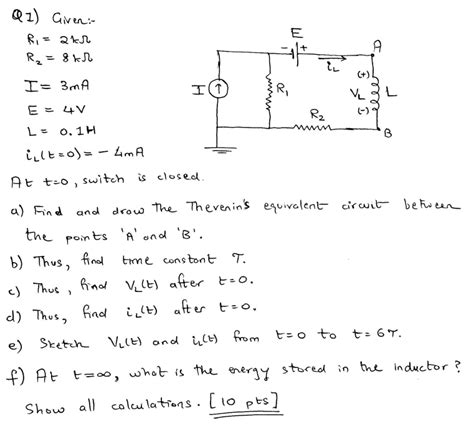 Q1) Given:-
R₁ = 2kΩ
R₂ = 8kΩ
I = 3mA
E = 4V
L = 0.1H
iL(t=0) = - 4mA
E
- +
A
iL
I
R₁
(+)
VL
L
(-)
R₂
B
At t=0, switch is closed.
a) Find and draw the Thevenin's equivalent circuit between
the points 'A' and 'B'.
b) Thus, find time constant τ.
c) Thus, find VL(t) after t=0.
d) Thus, find iL(t) after t=0.
e) Sketch VL(t) and iL(t) from t=0 to t=6τ.
f) At t=∞, what is the energy stored in the inductor?
Show all calculations. [10 pts]